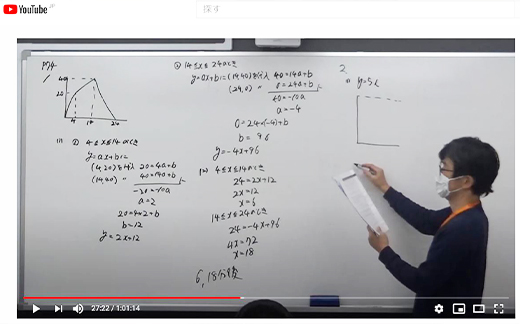 YouTube JP
探す
P74
40
20
4 14 24
(1) ① 4≦x≦14のとき
y=ax+bに
(4,20)を代入 20=4a+b
(14,40) 〃 40=14a+b
-20=-10a
a=2
20=4×2+b
b=12
y=2x+12
② 14≦x≦24のとき
y=ax+bに(14,40)を代入 40=14a+b
(24,0) 〃 0=24a+b
40=-10a
a=-4
0=24×(-4)+b
b=96
y=-4x+96
4≦x≦14のとき
24=2x+12
2x=12
x=6
14≦x≦24のとき
24=-4x+96
4x=72
x=18
6,18分後
2
(1) y=5x
27:22 / 1:01:14